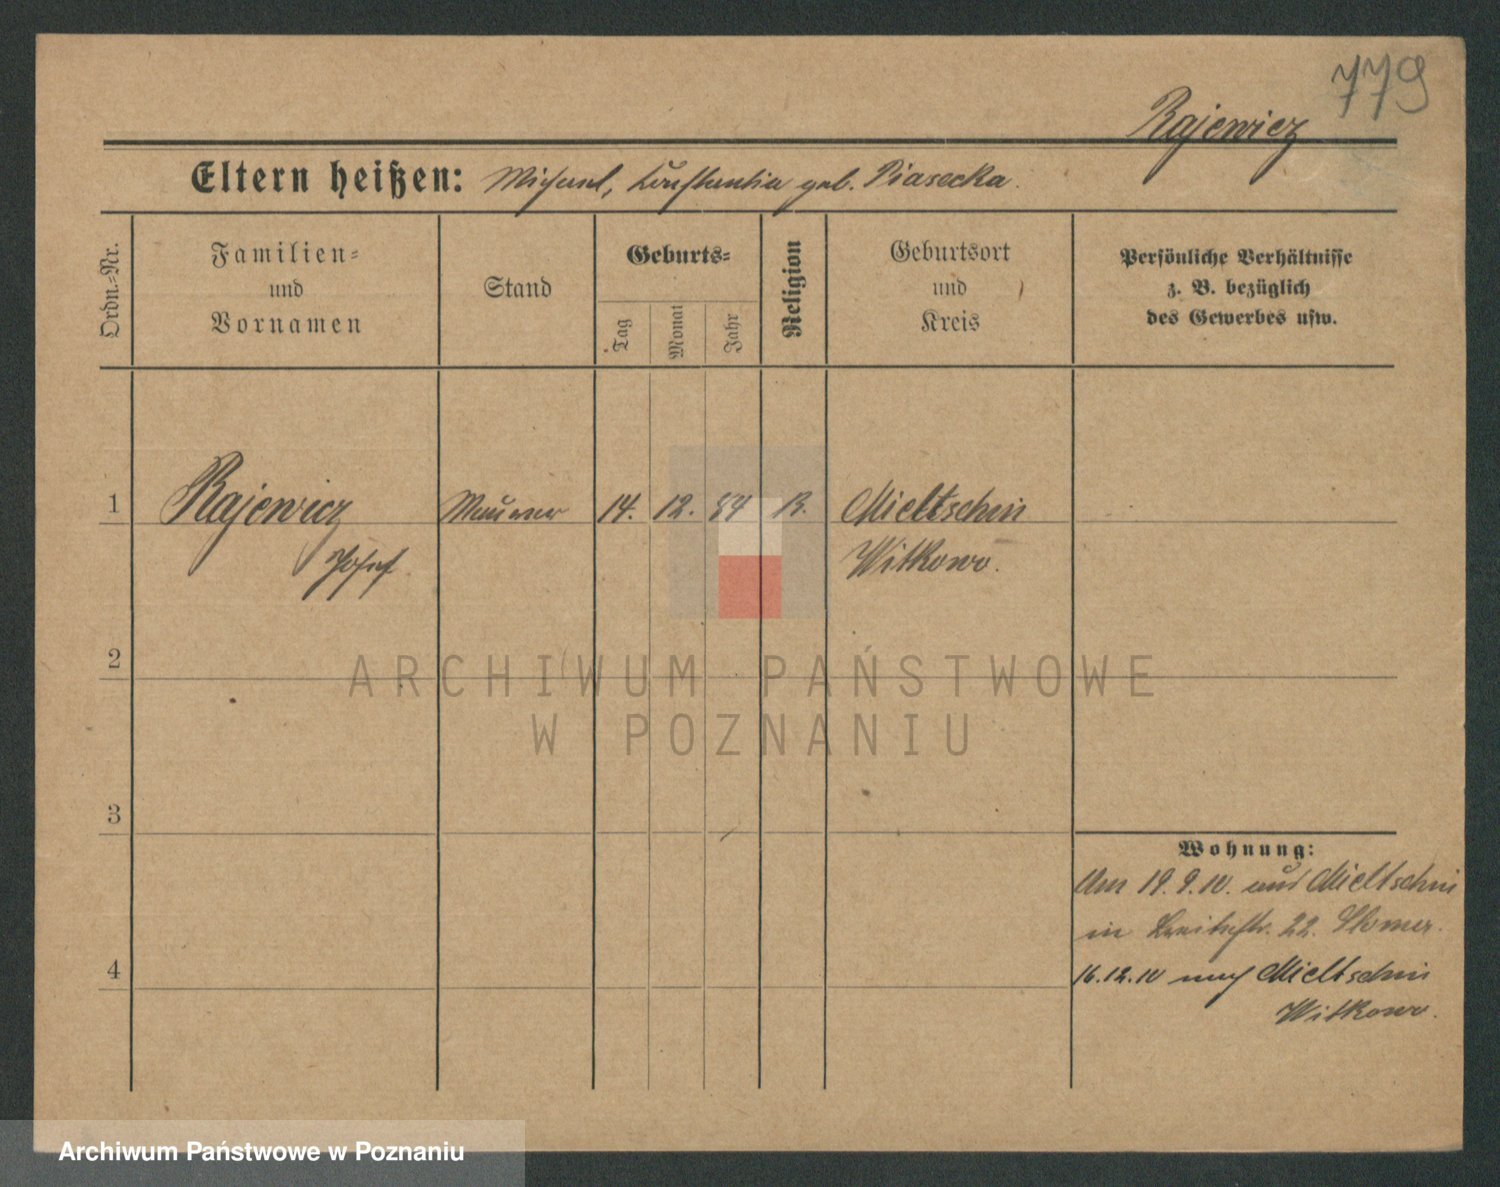 779
Rajewicz
Eltern heißen: Michael, Konstantia geb. Piasecka.
Ordn.-Nr.
Familien-
und
Vornamen
Stand
Geburts-
Tag
Monat
Jahr
Religion
Geburtsort
und
Kreis
Persönliche Verhältnisse
z. B. bezüglich
des Gewerbes usw.
1 Rajewicz Maurer 14. 12. 84 Mieltschin
Josef Witkowo.
2
3
4
Wohnung:
Am 19.9.10. aus Mieltschin
in Breitestr. 22.
16.12.10 nach Mieltschin
Witkowo.
ARCHIWUM PAŃSTWOWE
W POZNANIU
Archiwum Państwowe w Poznaniu